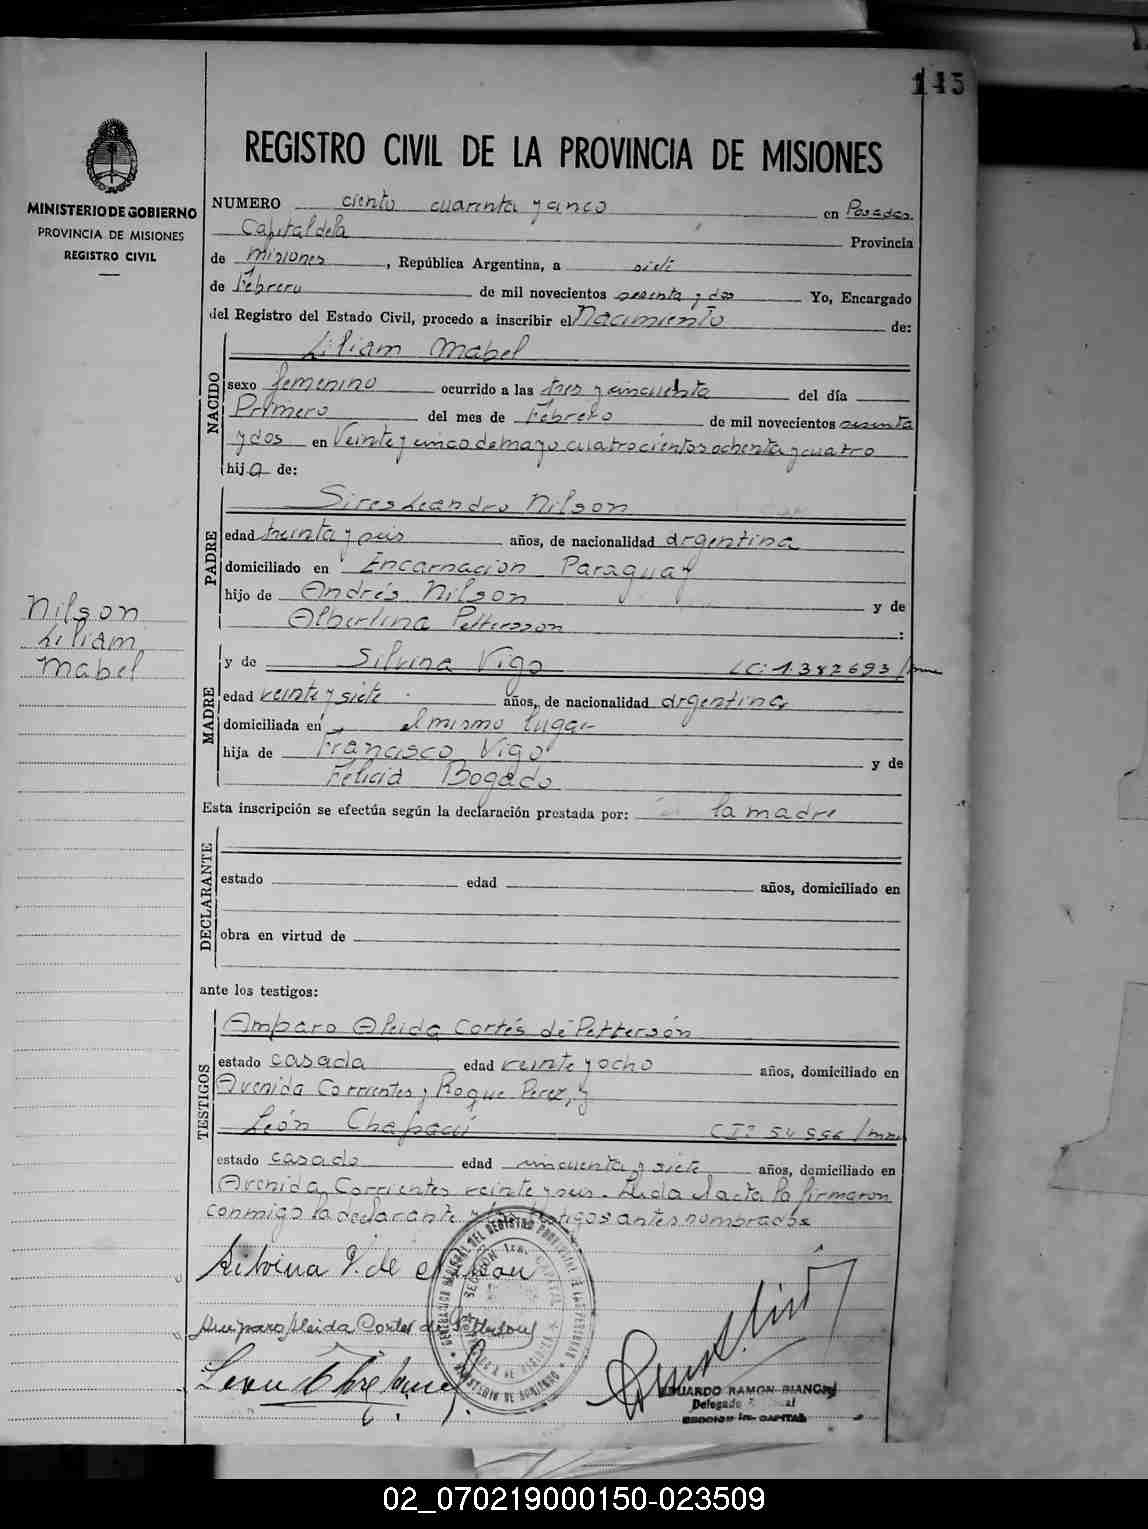 145
REGISTRO CIVIL DE LA PROVINCIA DE MISIONES
MINISTERIO DE GOBIERNO
PROVINCIA DE MISIONES
REGISTRO CIVIL
NUMERO ciento cuarenta y cinco en Posadas
Capital de la Provincia
de Misiones, República Argentina, a siete
de Febrero de mil novecientos sesenta y dos Yo, Encargado
del Registro del Estado Civil, procedo a inscribir el Nacimiento de:
NACIDO
Liliam Mabel
sexo femenino ocurrido a las tres y cincuenta del día
Primero del mes de Febrero de mil novecientos sesenta
y dos en Veinte y cinco de mayo cuatrocientos ochenta y cuatro
hija de:
PADRE
Sires Leandro Nilson
edad treinta y seis años, de nacionalidad argentina
domiciliado en Encarnacion Paraguay
hijo de Andrés Nilson y de
Albertina Pettersson :
Nilson
Liliam
Mabel
MADRE
y de Silvina Vigo LC: 1.382693/
edad veinte y siete años, de nacionalidad argentina
domiciliada en el mismo lugar
hija de Francisco Vigo y de
Felicia Bogado
Esta inscripción se efectúa según la declaración prestada por: la madre
DECLARANTE
estado edad años, domiciliado en
obra en virtud de
ante los testigos:
TESTIGOS
Amparo Aleida Cortés de Petterson
estado casada edad veinte y ocho años, domiciliado en
Avenida Corrientes y Roque Perez, y
León Chapacú
estado casado edad cincuenta y siete años, domiciliado en
Avenida Corrientes veinte y seis. Leida el acta la firmaron
conmigo la declarante y los testigos antes nombrados
Silvina V. de Nilson
Amparo Aleida Cortes de
EDUARDO RAMON BIANCHI
Delegado
SECCION 1ra. CAPITAL
02_070219000150-023509